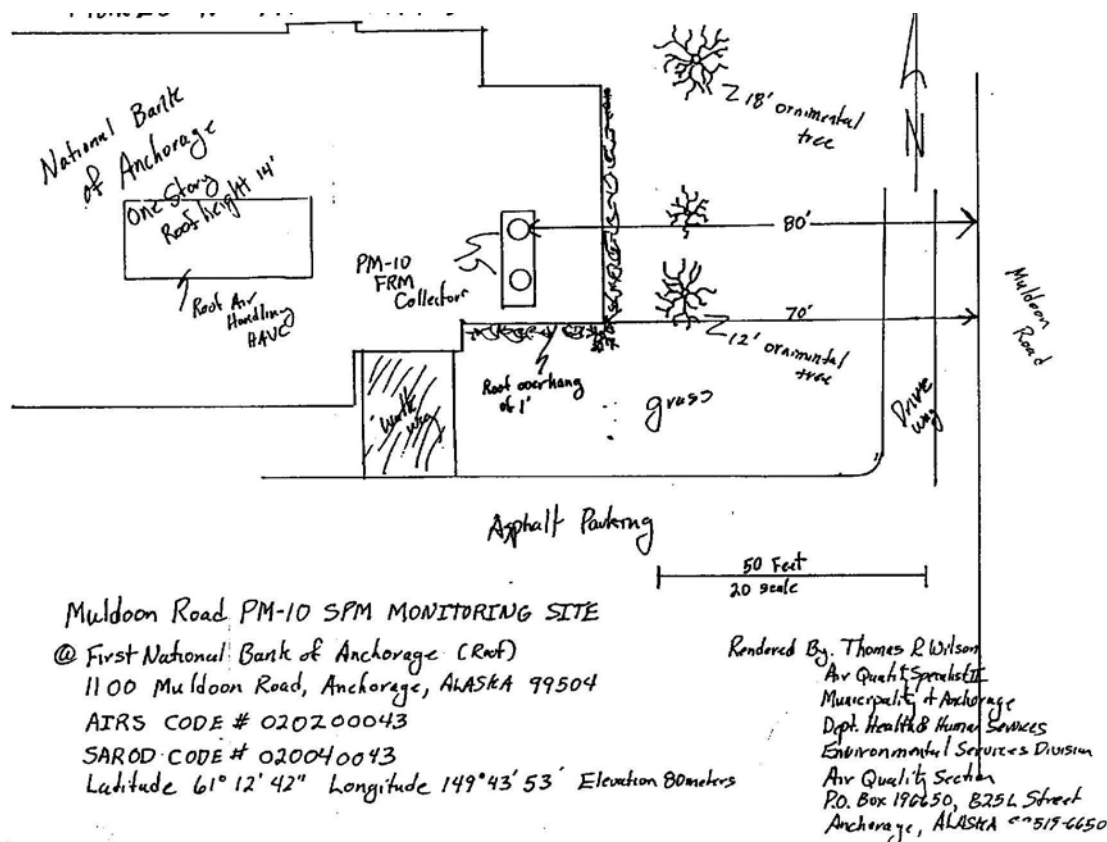 National Bank
of Anchorage
One Story
Roof height 14'
Roof Air
Handling
HAVC
PM-10
FRM
Collectors
18' ornimental
tree
N
80'
70'
12' ornimental
tree
Muldoon
Road
Roof overhang
of 1'
Walk
way
grass
Drive
way
Asphalt Parking
50 Feet
20 scale
Muldoon Road PM-10 SPM MONITORING SITE
@ First National Bank of Anchorage (Roof)
1100 Muldoon Road, Anchorage, ALASKA 99504
AIRS CODE # 020200043
SAROD CODE # 020040043
Latitude 61° 12' 42" Longitude 149° 43' 53' Elevation 80meters
Rendered By. Thomas R Wilson
Air Quality Specialist II
Municipality of Anchorage
Dept. Health & Human Services
Environmental Services Division
Air Quality Section
P.O. Box 196650, 825 L Street
Anchorage, ALASKA 519-6650